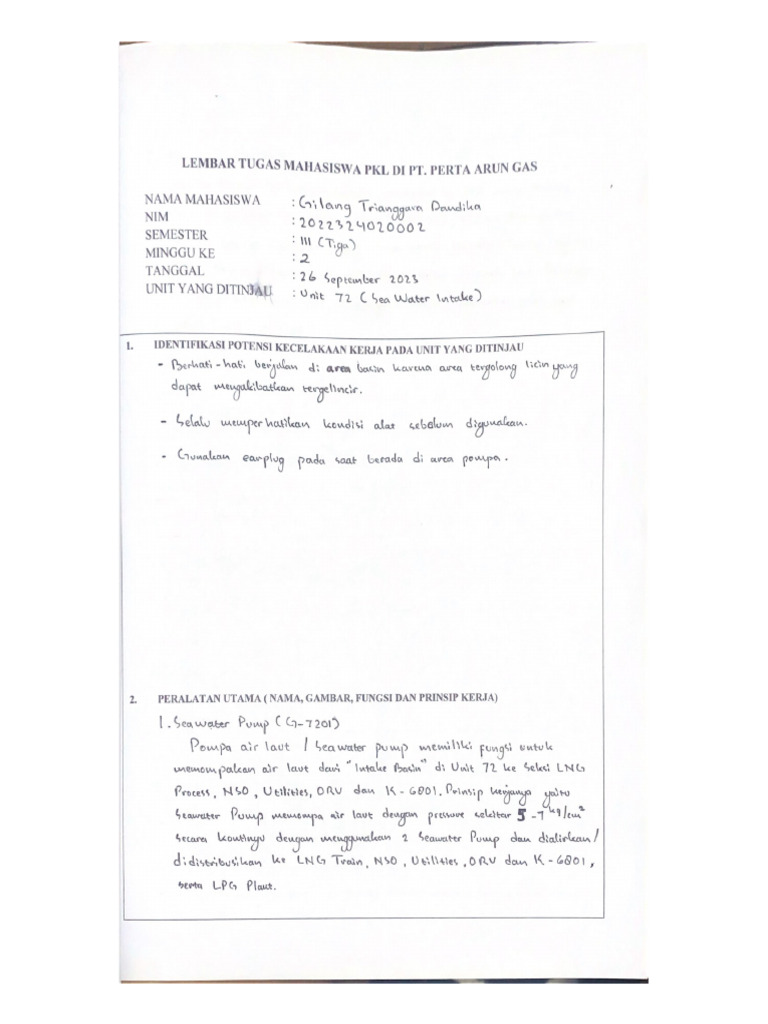 LEMBAR TUGAS MAHASISWA PKL DI PT. PERTA ARUN GAS
NAMA MAHASISWA : Gilang Trianggara Dandika
NIM : 2022324020002
SEMESTER : III (Tiga)
MINGGU KE : 2
TANGGAL : 26 September 2023
UNIT YANG DITINJAU : Unit 72 (Sea Water Intake)
1. IDENTIFIKASI POTENSI KECELAKAAN KERJA PADA UNIT YANG DITINJAU
- Berhati-hati berjalan di area basin karena area tergolong licin yang
dapat mengakibatkan tergelincir.
- Selalu memperhatikan kondisi alat sebelum digunakan.
- Gunakan earplug pada saat berada di area pompa.
2. PERALATAN UTAMA ( NAMA, GAMBAR, FUNGSI DAN PRINSIP KERJA)
1. Seawater Pump (G-7201)
Pompa air laut / Seawater pump memiliki fungsi untuk
memompakan air laut dari "Intake Basin" di Unit 72 ke Seksi LNG
Process, NSO, Utilities, ORV dan K-6801. Prinsip kerjanya yaitu
Seawater Pump memompa air laut dengan pressure sekitar 5-7 kg/cm²
secara kontinyu dengan menggunakan 2 Seawater Pump dan dialirkan/
didistribusikan ke LNG Train, NSO, Utilities, ORV dan K-6801,
serta LPG Plant.